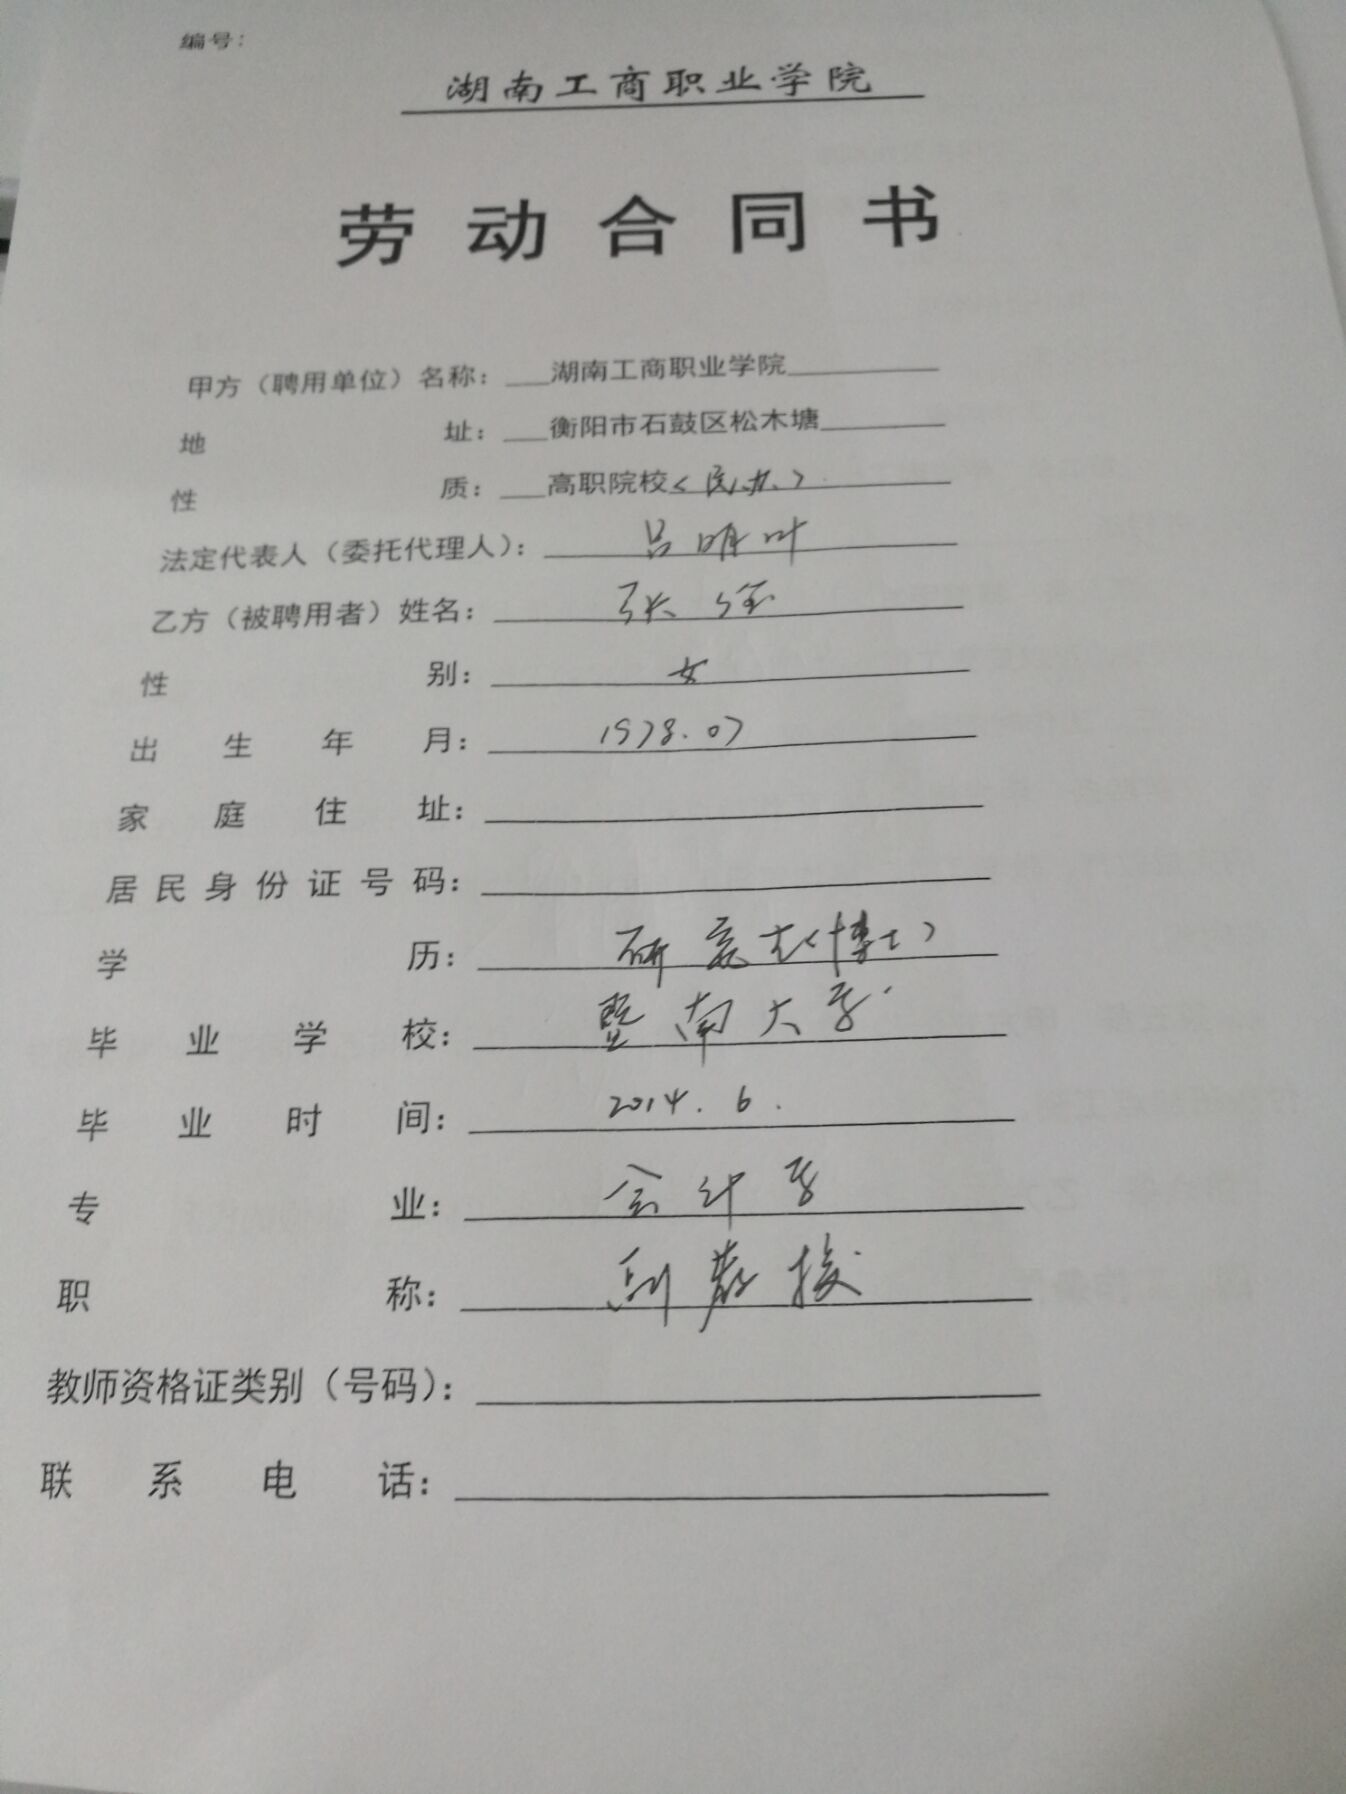 编号：
湖南工商职业学院
劳动合同书
甲方（聘用单位）名称：湖南工商职业学院
地址：衡阳市石鼓区松木塘
性质：高职院校（民办）
法定代表人（委托代理人）：吕明叶
乙方（被聘用者）姓名：张
性别：女
出生年月：1978.07
家庭住址：
居民身份证号码：
学历：研究生（博士）
毕业学校：暨南大学
毕业时间：2014.6.
专业：会计学
职称：副教授
教师资格证类别（号码）：
联系电话：